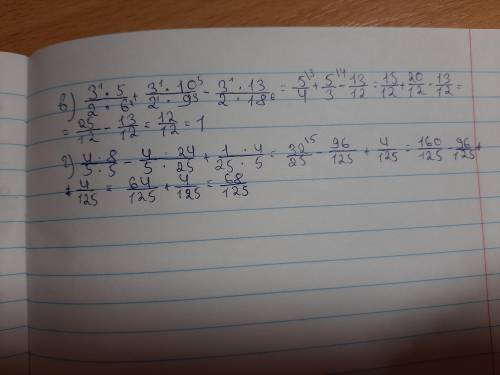 в) (3¹ · 5)/(2 · 6²) + (3¹ · 10⁵)/(2¹ · 9³) - (3¹ · 13)/(2 · 18⁶) = 5/4 ¹³ + 5/3 ¹⁴ - 13/12 = 15/12 + 20/12 - 13/12 =
= 25/12 - 13/12 = 12/12 = 1
г) (4 · 8)/(5 · 5) - (4 · 24)/(5 · 25) + (1 · 4)/(25 · 5) = 32/25 ¹⁵ - 96/125 + 4/125 = 160/125 - 96/125 +
+ 4/125 = 64/125 + 4/125 = 68/125